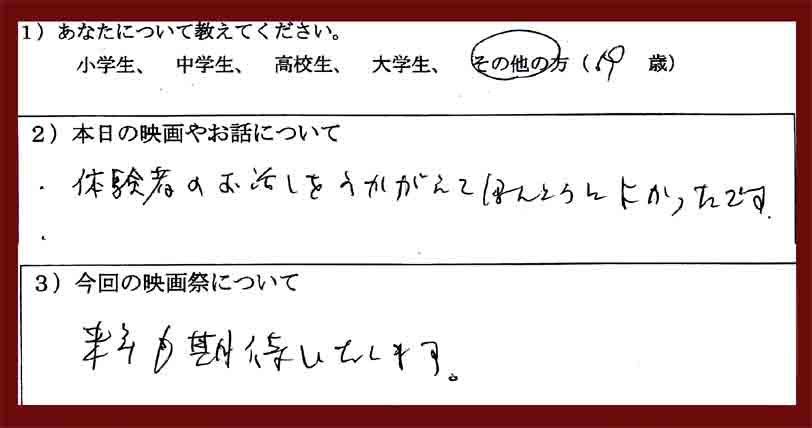 1）あなたについて教えてください。
小学生、 中学生、 高校生、 大学生、 その他の方（59 歳）
2）本日の映画やお話について
・体験者のお話しをうかがえてほんとうによかったです.
・
3）今回の映画祭について
来年も期待いたします。